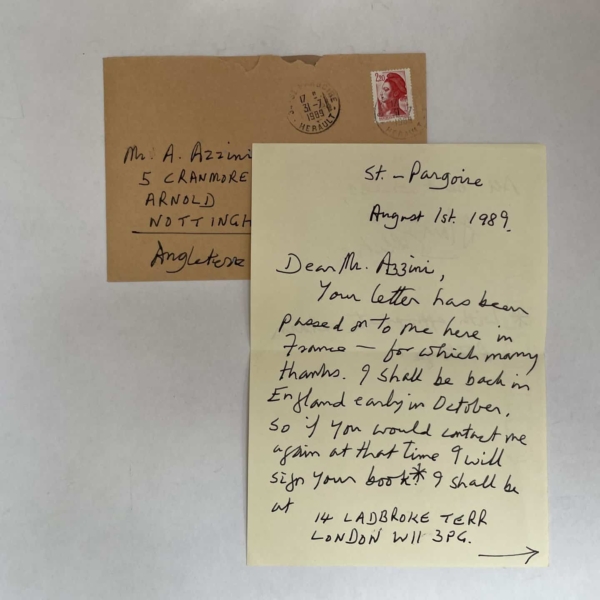 17 H
31-7
1989
HERAULT
2,20
Mr. A. Azzini
5 CRANMORE
ARNOLD
NOTTINGH
Angleterre
St. - Pargoire
August 1st. 1989.
Dear Mr. Azzini,
Your letter has been
passed on to me here in
France — for which many
thanks. I shall be back in
England early in October,
so if you would contact me
again at that time I will
sign your book*. I shall be
at
14 LADBROKE TERR
LONDON W11 3PG.
→